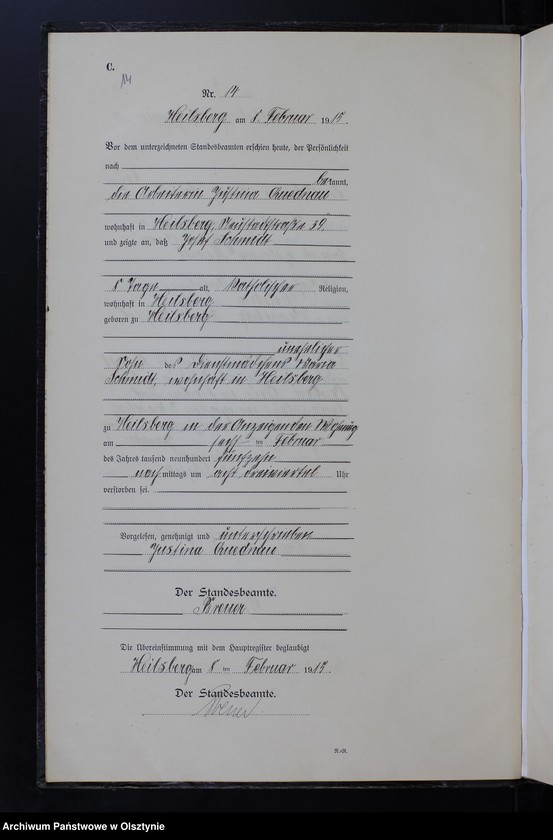 C.
14
Nr. 14
Heilsberg am 8. Februar 1915.
Vor dem unterzeichneten Standesbeamten erschien heute, der Persönlichkeit
nach
bekannt,
die Arbeiterin Justina Quednau
wohnhaft in Heilsberg, Neustadtstraße 39,
und zeigte an, daß Josef Schmidt
8 Tage alt, katholischer Religion,
wohnhaft in Heilsberg
geboren zu Heilsberg
unehelicher
Sohn des Dienstmädchens Maria
Schmidt, wohnhaft in Heilsberg
zu Heilsberg in der Anzeigenden Wohnung
am ten Februar
des Jahres tausend neunhundert fünfzehn
nachmittags um acht dreiviertel Uhr
verstorben sei.
Vorgelesen, genehmigt und unterschrieben
Justina Quednau
Der Standesbeamte.
Die Übereinstimmung mit dem Hauptregister beglaubigt
Heilsberg am 8 ten Februar 1915.
Der Standesbeamte.
R.-R.
Archiwum Państwowe w Olsztynie